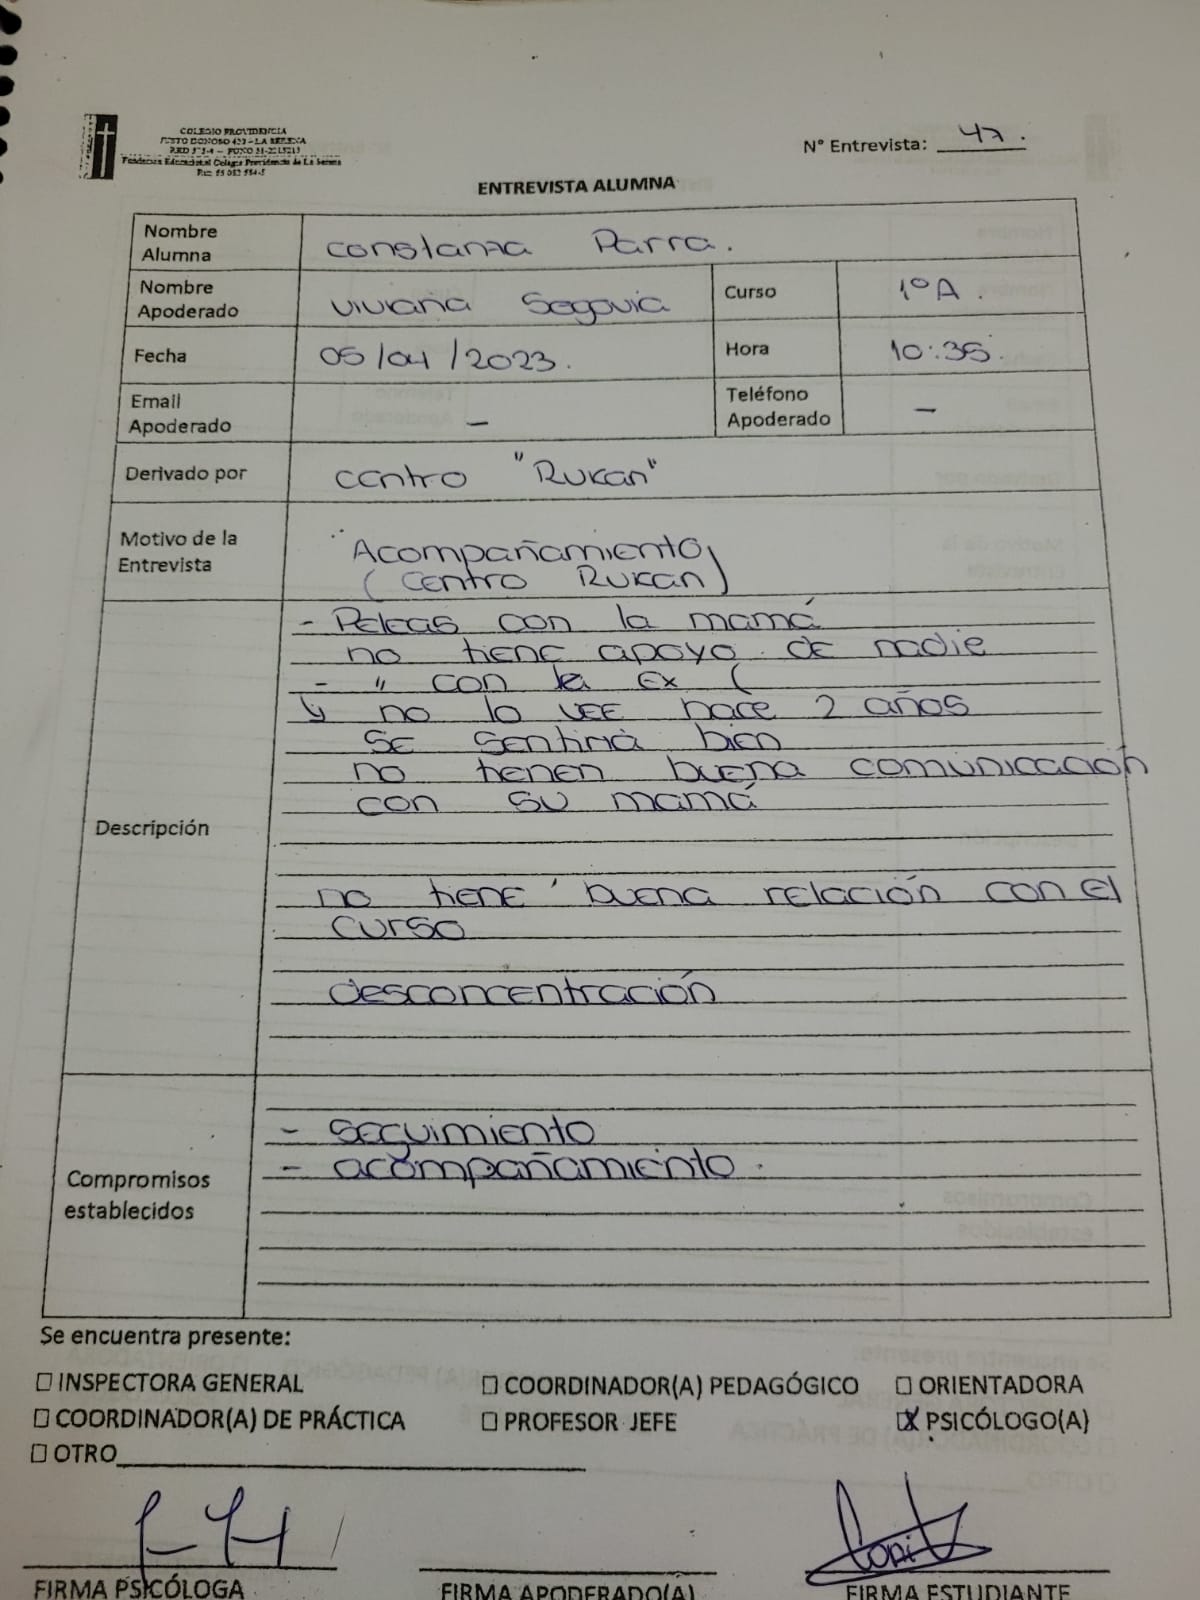 COLEGIO PROVIDENCIA
JUSTO DONOSO 420 - LA SERENA
Fundación Educacional Colegio Providencia de La Serena
N° Entrevista: 47.
ENTREVISTA ALUMNA
Nombre Alumna constanza Parra.
Nombre Apoderado Viviana Segovia Curso 1°A.
Fecha 05/04/2023. Hora 10:35.
Email Apoderado - Teléfono Apoderado -
Derivado por centro "Rukan"
Motivo de la Entrevista Acompañamiento
(centro Rukan)
Descripción
- Peleas con la mamá
no tiene apoyo de nadie
- " con la Ex (
↳ no lo vee hace 2 años
se sentiria bien
no tienen buena comunicación
con su mamá
no tiene buena relación con el
curso
desconcentración
Compromisos establecidos
- seguimiento
- acompañamiento.
Se encuentra presente:
☐ INSPECTORA GENERAL ☐ COORDINADOR(A) PEDAGÓGICO ☐ ORIENTADORA
☐ COORDINADOR(A) DE PRÁCTICA ☐ PROFESOR JEFE ☒ PSICÓLOGO(A)
☐ OTRO
FIRMA PSICÓLOGA FIRMA APODERADO(A) FIRMA ESTUDIANTE